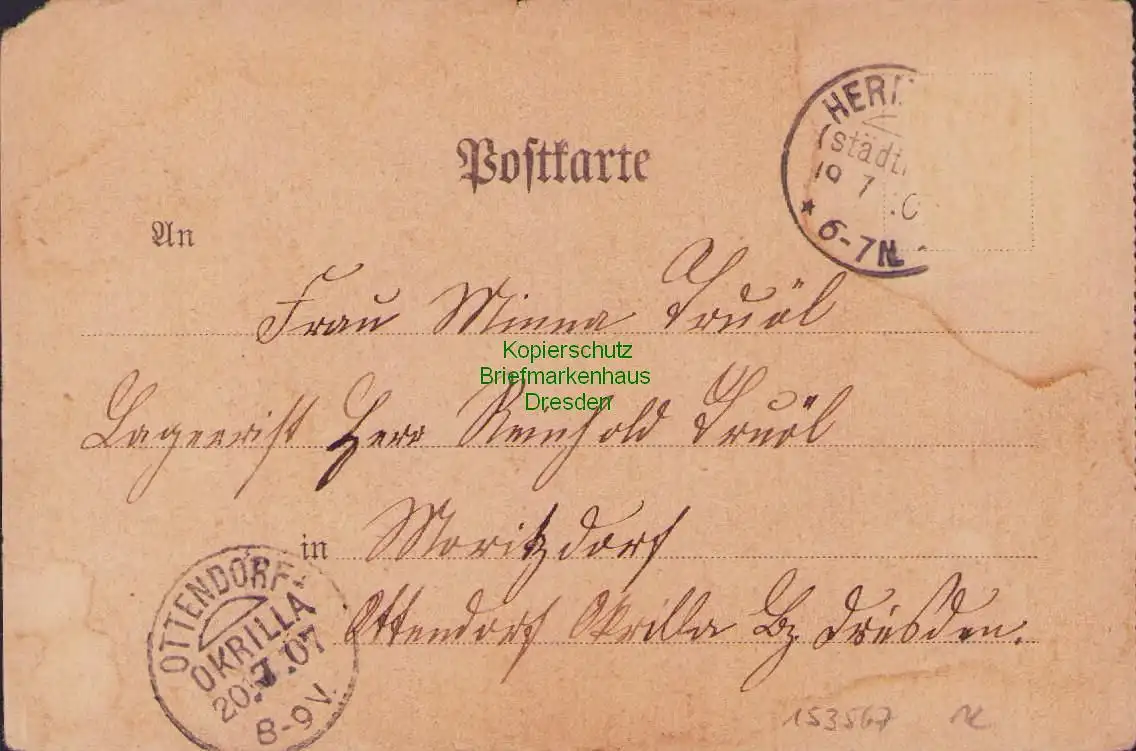 Postkarte
HER
(städt
19 7 .0
* 6-7N.
An
Frau Minna Truöl
Kopierschutz
Briefmarkenhaus
Dresden
Lagerist Herr Reinhold Truöl
in Moritzdorf
Ottendorf Okrilla Bz Dresden.
OTTENDORF-
OKRILLA
20.7.07
8-9V.
153567